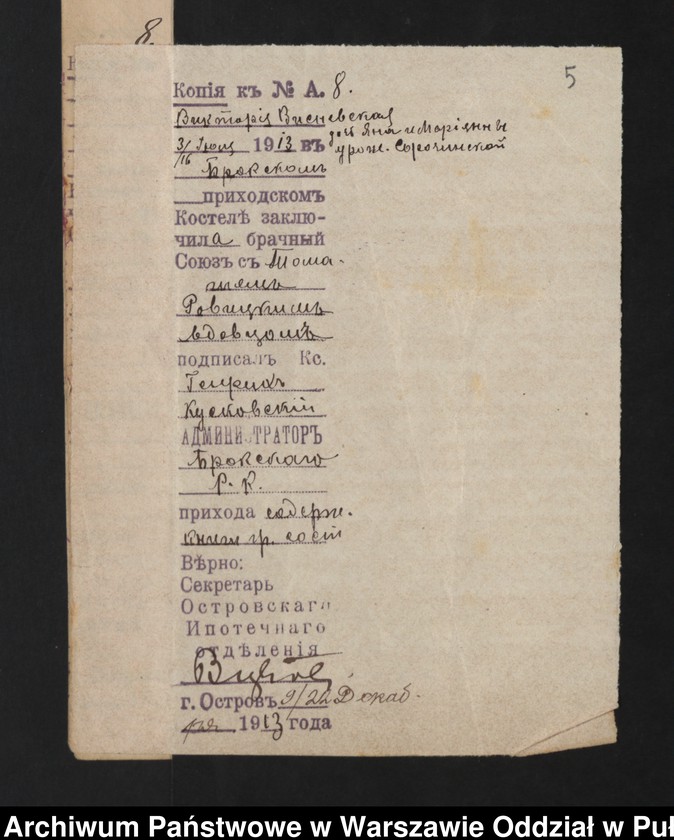 8.
5
Копія къ № А. 8.
Викторія Висневская
дочь Яна и Маріянны
урож. Сорочинской
3/16 Іюля 1913 въ
Брокскомъ
приходскомъ
Костелѣ заклю-
чила брачный
Союзъ съ Тома-
шемъ
Ровицкимъ
вдовцомъ
подписалъ Кс.
Генрихъ
Кусковскій
АДМИНИСТРАТОРЪ
Брокскаго
Р. К.
прихода содерж.
книги гр. сост
Вѣрно:
Секретарь
Островскаго
Ипотечнаго
отдѣленія
г. Островъ 9/22 Декаб-
ря 1913 года
Archiwum Państwowe w Warszawie Oddział w Puł